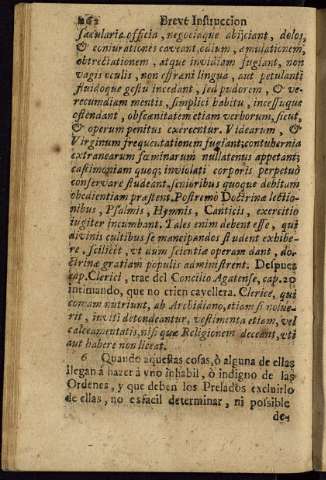 262 Breve Instruccion
sæcularia officia, negociaque abijciant, dolos,
& coniurationes caveant, odium, æmulationem,
obtrectationem, atque invidiam fugiant, non
vagis oculis, non effræni lingua, aut petulanti
fluidoque gestu incedant, sed pudorem, & ve-
recundiam mentis, simplici habitu, incessuque
ostendant, obscænitatem etiam verborum, sicut,
& operum penitus execrentur. Viduarum, &
Virginum frequentationem fugiant; contubernia
extranearum fœminarum nullatenus appetant;
castimoniam quoq; inviolati corporis perpetuò
conservare studeant, senioribus quoque debitam
obedientiam præstent. Postremò Doctrinæ lectio-
nibus, Psalmis, Hymnis, Canticis, exercitio
iugiter incumbant. Tales enim debent esse, qui
divinis cultibus se mancipandos student exhibe-
re, scilicèt, vt dum scientiæ operam dant, do-
ctrinæ gratiam populis administrent. Despues
cap. Clerici, trae del Concilio Agatense, cap. 20
intimando, que no crien cavellera. Clerice, qui
comam nutriunt, ab Archidiano, etiam si nolue-
rit, inviti detondeantur, vestimenta etiam, vel
calceamentatis, nisi quæ Religionem deceant, vti
aut habere non liceat.
6 Quando aquestas cosas, ò alguna de ellas
llegan á hazer á vno inhabil, ò indigno de las
Ordenes, y que deben los Prelados excluirlo
de ellas, no es facil determinar, ni possible
de-